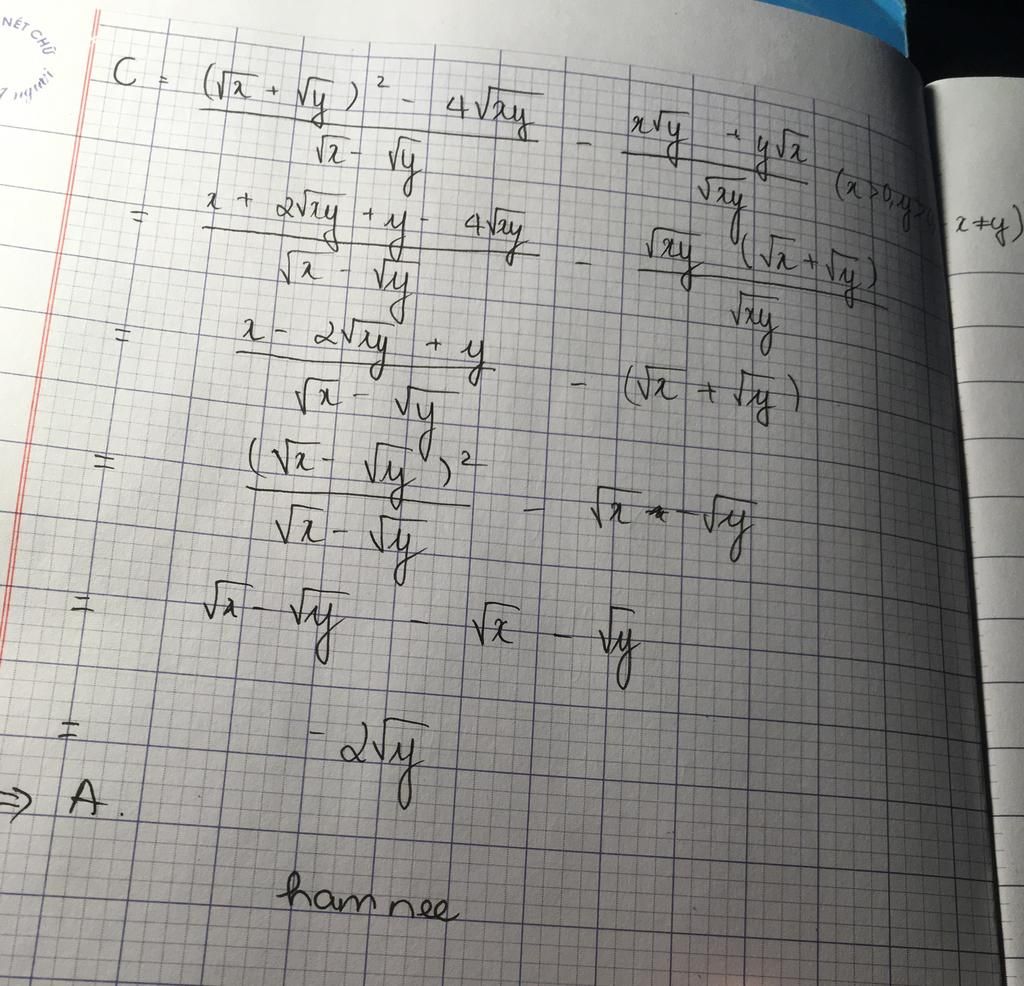 NÉT CHỮ
người
C = ((√x + √y)² - 4√xy)/(√x - √y) - (x√y + y√x)/√xy (x>0, y>0, x≠y)
= (x + 2√xy + y - 4√xy)/(√x - √y) - (√xy (√x + √y))/√xy
= (x - 2√xy + y)/(√x - √y) - (√x + √y)
= (√x - √y)²/(√x - √y) - √x - √y
= √x - √y - √x - √y
= - 2√y
⇒ A.
hamnee